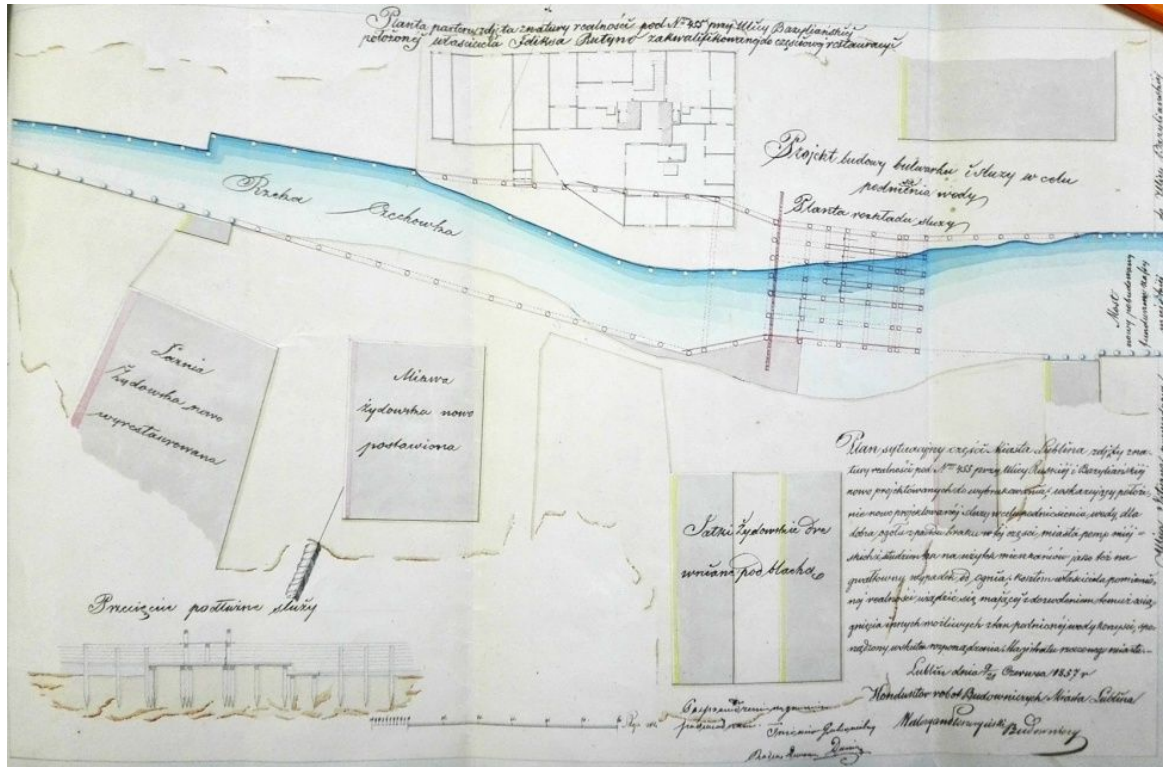 Planta parteru zdjęta z natury realności pod Nº 455 przy Ulicy Bazyliańskiéj
położonéj właściciela Feliksa Butyno zakwalifikowanéj do częściowéj restauracyi
Projekt budowy bulwarku i śluzy w celu
podniesienia wody
Planta rozkładu śluzy
Rzeka Czechówka
Most
nowy pobudowany
Łaznia
Żydowska nowo
wyrestaurowana
Mikwa
żydowska nowo
postawiona
Jatki Żydowskie dre
wniane pod blachą
Przecięcie podłużne śluzy
Plan sytuacyjny części Miasta Lublina zdjęty z na-
tury realności pod Nº 455 przy Ulicy Ruskiéj i Bazyliańskiéj
nowo projektowanych do wybrukowania, wskazujący położe-
nie nowo projektowanéj śluzy w celu podniesienia wody, dla
dobra ogółu z powodu braku w téj części miasta pomp miéj-
skich i studzienek na użytek mieszkańców jako też na
gwałtowny wypadek od ognia, kosztem właściciela pomienio-
néj realności urządzić się mającéj z dozwoleniem
innych możliwych stan podnionéj wody korzyści, spo-
rządzony wskutek rozporządzenia Magistratu
Lublin dnia Czerwca 1857 r
Konduktor robót Budowniczych Miasta Lublina
Budowniczy